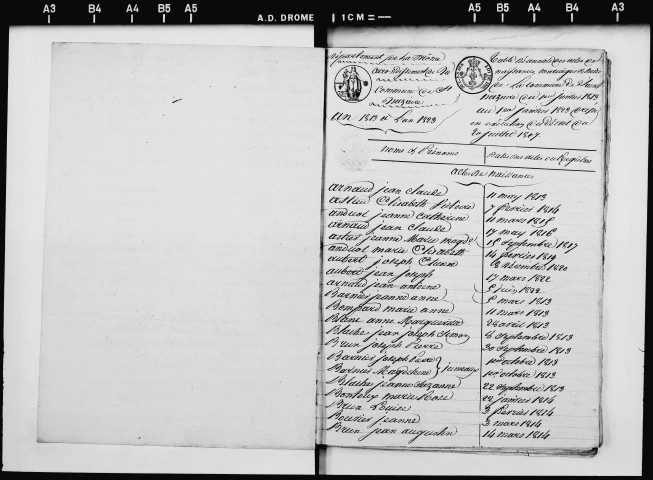 A3 B4 A4 B5 A5 A.D. DROME 1 CM A5 B5 A4 B4 A3
Département de la Drôme
Arrondissement de
Commune de St
Nazaire
an 1813 à l'an 1823
Table décennale des actes de
naissance, mariages et décès
de la Commune de Saint
nazaire du 1er janvier 1813
au 1er janvier 1823
en exécution du décret du
20 juillet 1807
Noms et Prénoms
Dates des actes ou Registres
actes de naissances
arnaud jean claude 11 may 1813
Elisabeth 7 février 1814
anduol jeanne catherine 11 mars 1815
arnaud jean claude 17 may 1816
jeanne Marie magde 15 septembre 1817
anduol marie Elisabeth 14 février 1819
aubert joseph Etienne 8 décembre 1820
aubert jean joseph 17 mars 1822
arnaud jean antoine 5 juin 1822
Barnier jeanne anne 5 mars 1813
Bompard marie anne 11 mars 1813
Blanc anne Margueritte 24 avril 1813
Blache jean joseph Simon 6 septembre 1813
Brun joseph Pierre 30 septembre 1813
Barnier joseph Pierre 1er octobre 1813
Barnier Magdelaine } jumeaux 1er octobre 1813
Blache jeanne Suzanne 22 septembre 1813
Bontoux marie Rose 22 janvier 1814
Brun Louise 3 février 1814
Bouvier jeanne 3 mars 1814
Brun jean augustin 14 mars 1814